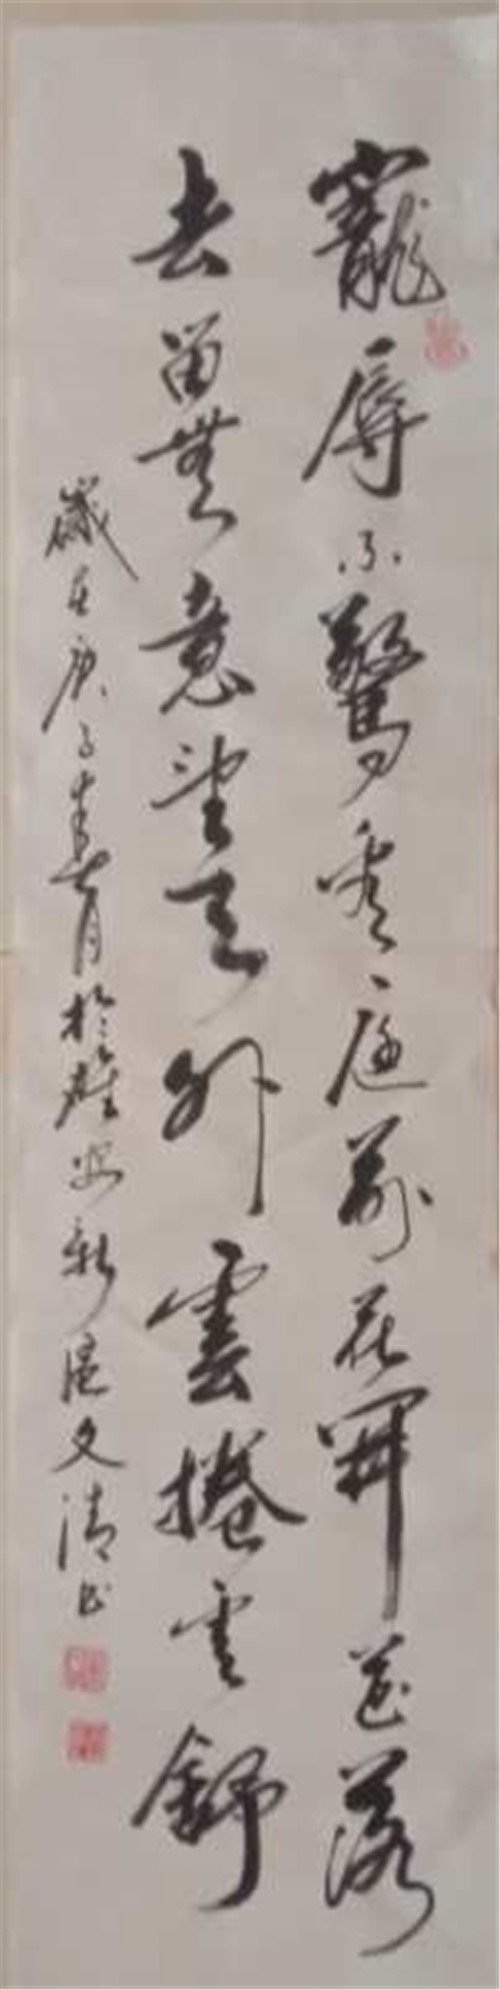 寵辱不驚看庭前花開花落
去留無意望天外雲捲雲舒
歲在庚子月於雄安新區文清书